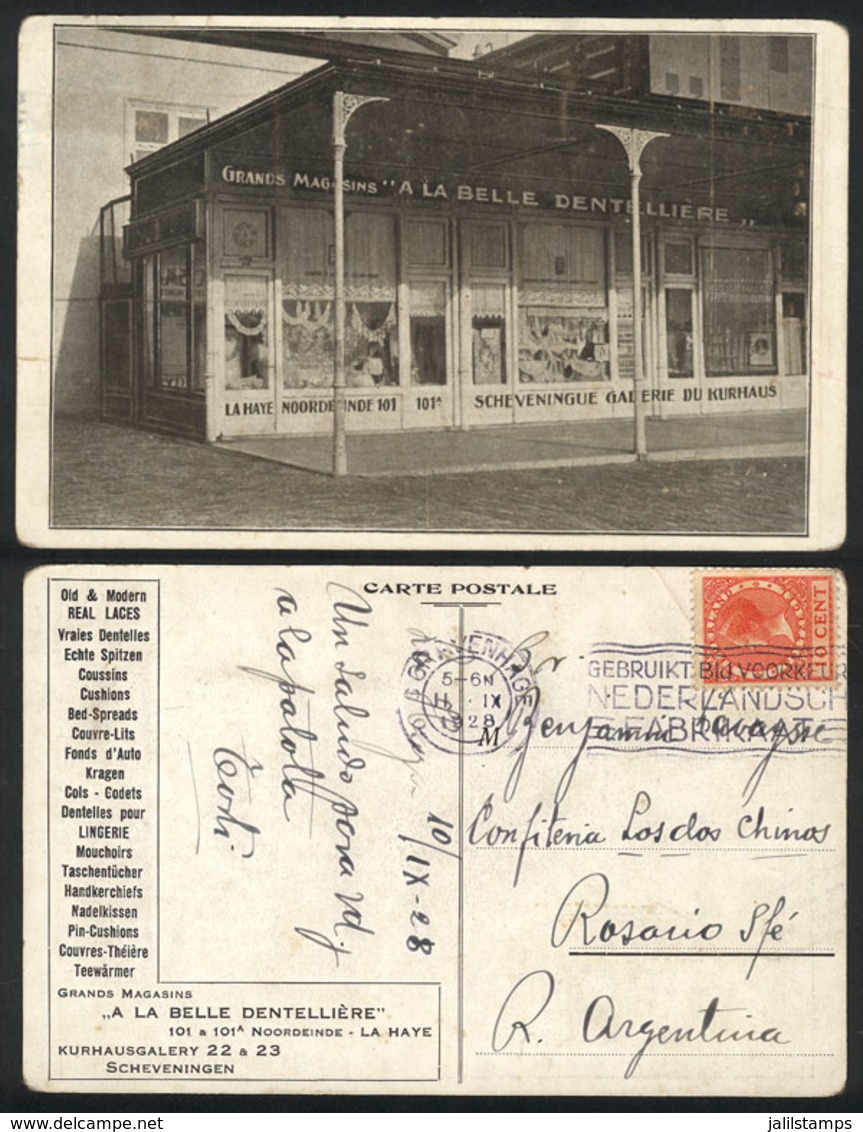 GRANDS MAGASINS "A LA BELLE DENTELLIÈRE„
LA HAYE NOORDEINDE 101 101A SCHEVENINGUE GALERIE DU KURHAUS
CARTE POSTALE
Old & Modern
REAL LACES
Vraies Dentelles
Echte Spitzen
Coussins
Cushions
Bed-Spreads
Couvre-Lits
Fonds d'Auto
Kragen
Cols - Codets
Dentelles pour
LINGERIE
Mouchoirs
Taschentücher
Handkerchiefs
Nadelkissen
Pin-Cushions
Couvres-Théière
Teewärmer
GRANDS MAGASINS
„A LA BELLE DENTELLIÈRE"
101 & 101A NOORDEINDE - LA HAYE
KURHAUSGALERY 22 & 23
SCHEVENINGEN
10/IX-28
Un saludo para Vd. y
a la patota
'S GRAVENHAGE
5-6N
IX
1928
M
10 CENT
GEBRUIKT BIJ VOORKEUR
NEDERLANDSCH
FABRIKAAT
Sr.
Benjamin
Confiteria Los dos Chinos
Rosario Sfé
R. Argentina
jalilstamps www.delcampe.net